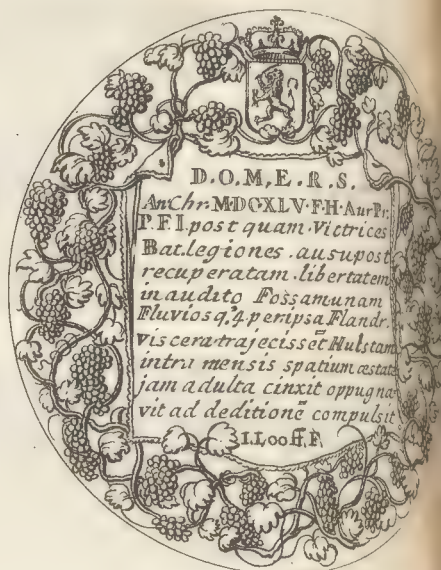 D.O.M.E.R.S.
An.Chr.MDCXLV.F.H.Aur.Pr.
P.F.I.post quam.Victrices
Bat.legiones.ausupost
recuperatam.libertatem
inaudito Fossamunam
Fluviosq.4.peripsa Flandr.
viscera.trajecisset̄ Hulstam
intra mensis spatium æstate
jam adulta cinxit oppugna
vit ad deditionē compulsit
I.Looff.F.